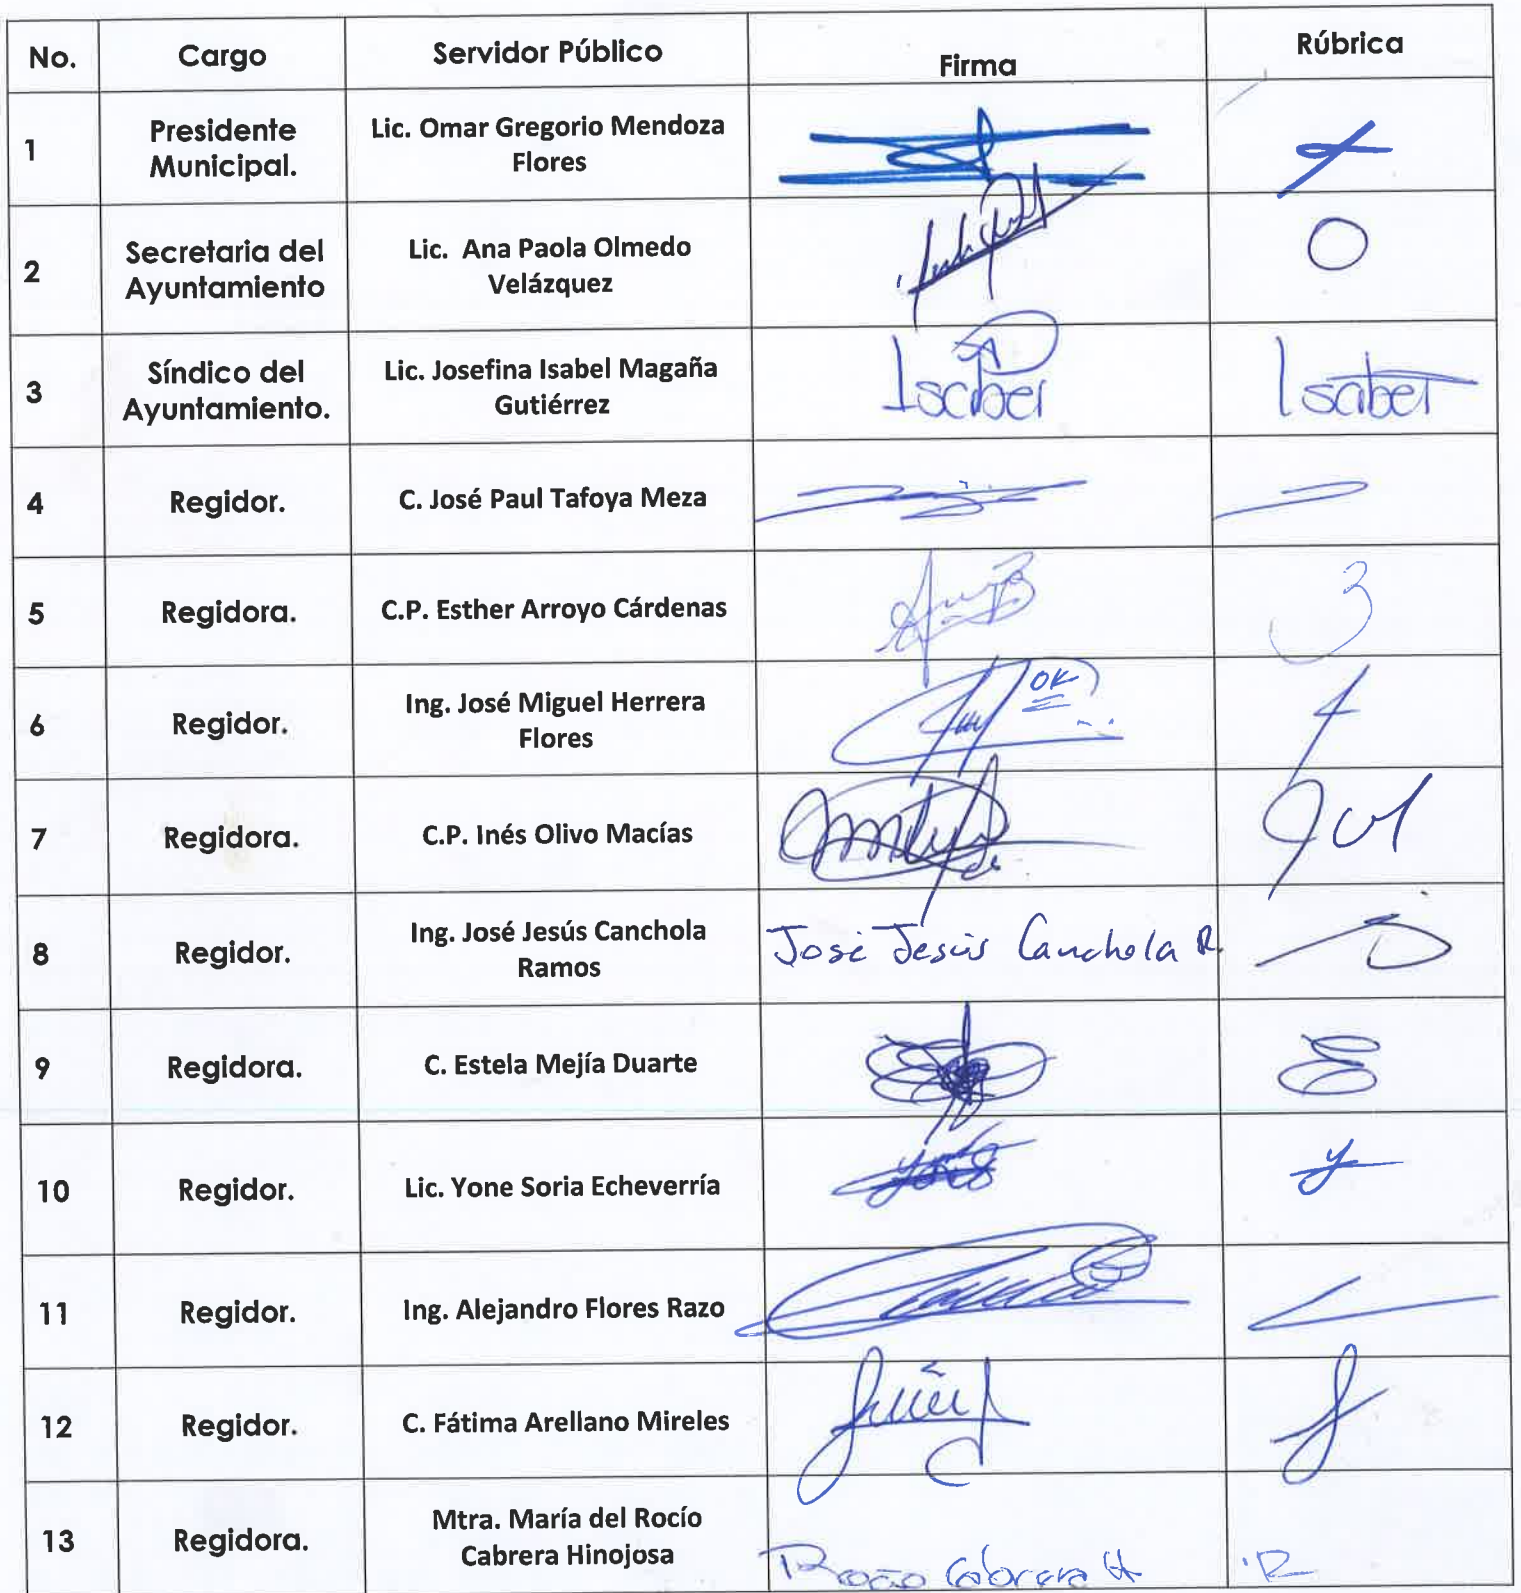 No.
Cargo
Servidor Público
Firma
Rúbrica
1
Presidente
Municipal.
Lic. Omar Gregorio Mendoza
Flores
2
Secretaria del
Ayuntamiento
Lic. Ana Paola Olmedo
Velázquez
3
Síndico del
Ayuntamiento.
Lic. Josefina Isabel Magaña
Gutiérrez
Isabel
Isabel
4
Regidor.
C. José Paul Tafoya Meza
5
Regidora.
C.P. Esther Arroyo Cárdenas
6
Regidor.
Ing. José Miguel Herrera
Flores
OK
7
Regidora.
C.P. Inés Olivo Macías
8
Regidor.
Ing. José Jesús Canchola
Ramos
José Jesús Canchola R.
9
Regidora.
C. Estela Mejía Duarte
10
Regidor.
Lic. Yone Soria Echeverría
11
Regidor.
Ing. Alejandro Flores Razo
12
Regidor.
C. Fátima Arellano Mireles
13
Regidora.
Mtra. María del Rocío
Cabrera Hinojosa
Rocío Cabrera H
R